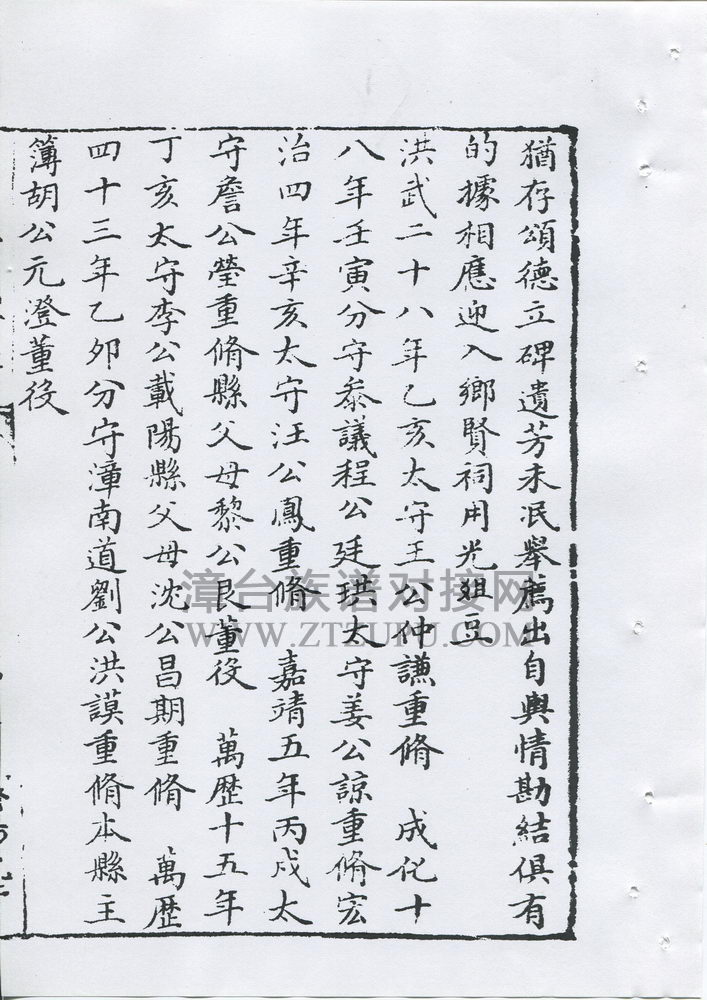 猶存頌德立碑遺芳未泯舉薦出自輿情勘結俱有
的據相應迎入鄉賢祠用光俎豆
洪武二十八年乙亥太守王公仲謙重脩　成化十
八年壬寅分守叅議程公廷珙太守姜公諒重脩宏
治四年辛亥太守汪公鳳重脩　嘉靖五年丙戌太
守詹公瑩重脩縣父母黎公艮董役　萬歷十五年
丁亥太守李公載陽縣父母沈公昌期重脩　萬歷
四十三年乙卯分守漳南道劉公洪謨重脩本縣主
簿胡公元澄董役
漳台族谱对接网
WWW.ZTZUPU.COM